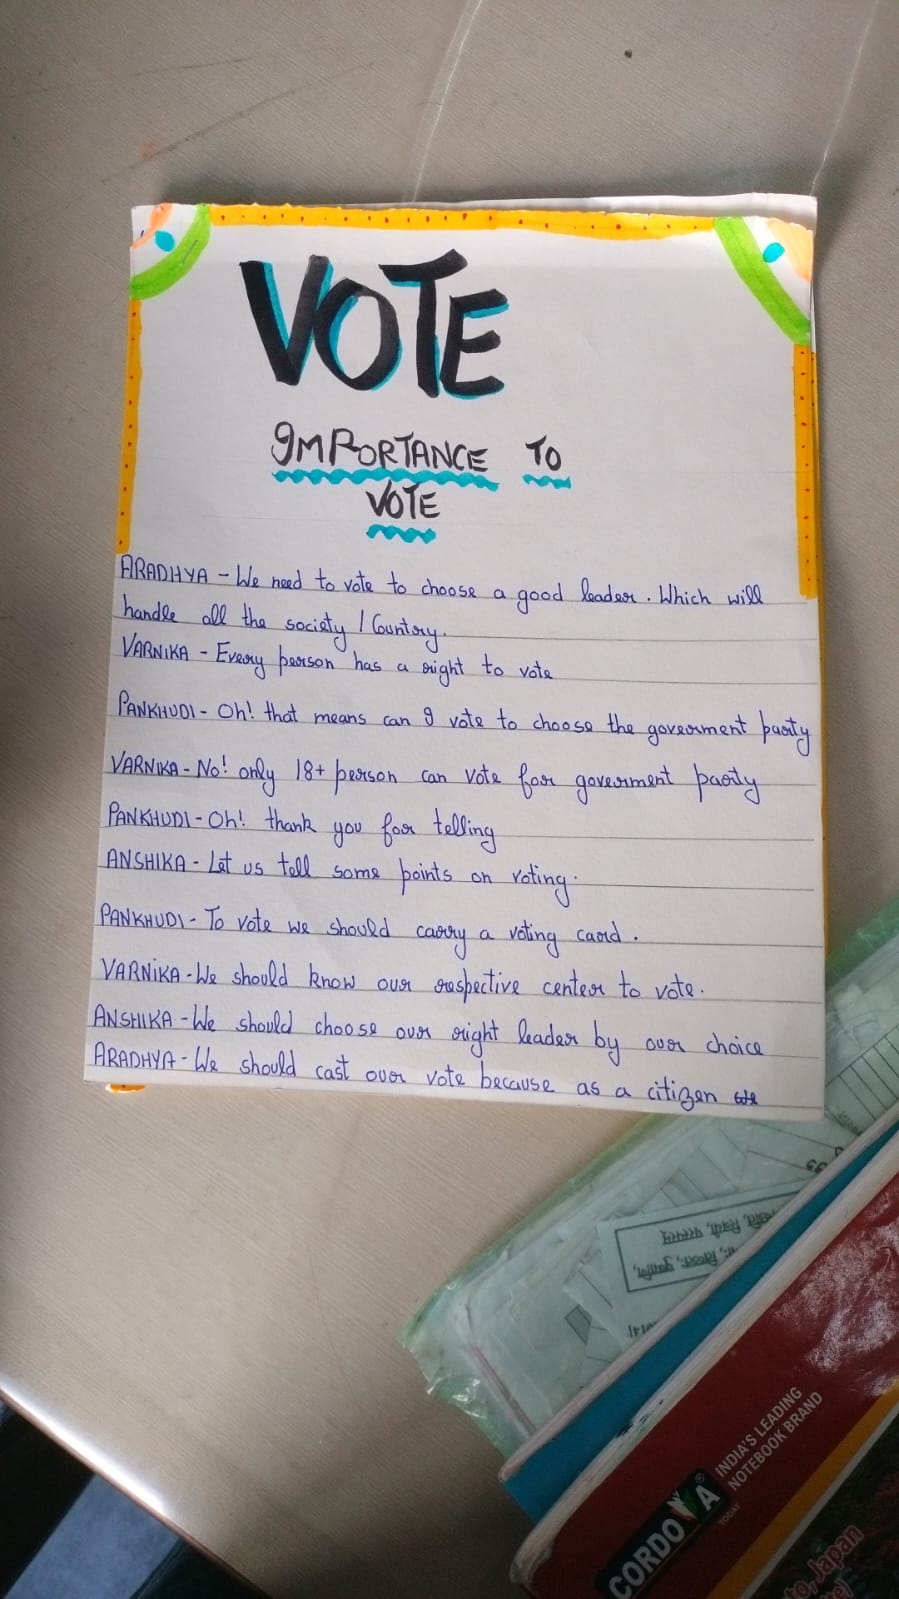 VOTE
IMPORTANCE TO
VOTE
ARADHYA - We need to vote to choose a good leader. Which will
handle all the society / Country.
VARNIKA - Every person has a right to vote
PANKHUDI - Oh! that means can I vote to choose the goverment party
VARNIKA - No! only 18+ person can vote for goverment party
PANKHUDI - Oh! thank you for telling
ANSHIKA - Let us tell some points on voting.
PANKHUDI - To vote we should carry a voting card.
VARNIKA - We should know our respective center to vote.
ANSHIKA - We should choose our right leader by our choice
ARADHYA - We should cast our vote because as a citizen we
CORDOVA®
TODAY
INDIA'S LEADING
NOTEBOOK BRAND
Japan